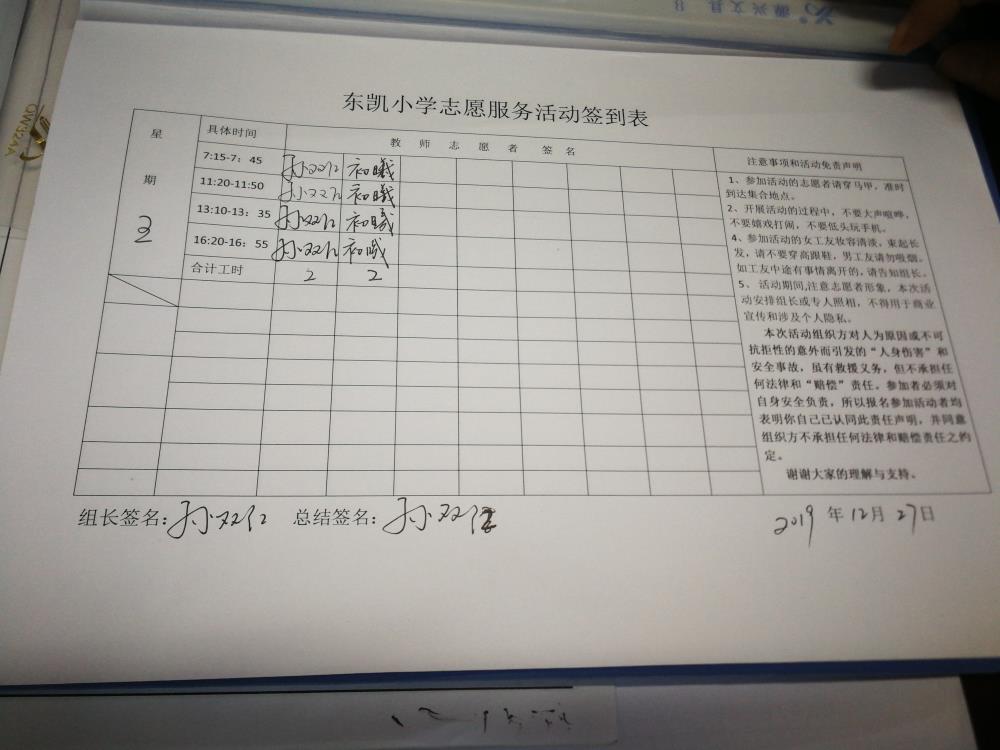 源兴文具
QW32AA
东凯小学志愿服务活动签到表
星期
具体时间 教师志愿者签名 注意事项和活动免责声明
7:15-7：45 孙双仁 初曦
11:20-11:50 孙双仁 初曦
13:10-13：35 孙双仁 初曦
16:20-16：55 孙双仁 初曦
合计工时 2 2
1、参加活动的志愿者请穿马甲，准时
到达集合地点。
2、开展活动的过程中，不要大声喧哗，
不要嬉戏打闹，不要低头玩手机。
4、参加活动的女工友妆容清淡，束起长
发，请不要穿高跟鞋，男工友请勿吸烟。
如工友中途有事情离开的，请告知组长。
5、 活动期间,注意志愿者形象，本次活
动安排组长或专人照相，不得用于商业
宣传和涉及个人隐私。
本次活动组织方对人为原因或不可
抗拒性的意外而引发的“人身伤害”和
安全事故，虽有救援义务，但不承担任
何法律和“赔偿”责任。参加者必须对
自身安全负责，所以报名参加活动者均
表明你自己已认同此责任声明，并同意
组织方不承担任何法律和赔偿责任之约
定。
谢谢大家的理解与支持。
组长签名：孙双仁 总结签名：孙双仁 2019 年 12月 27日